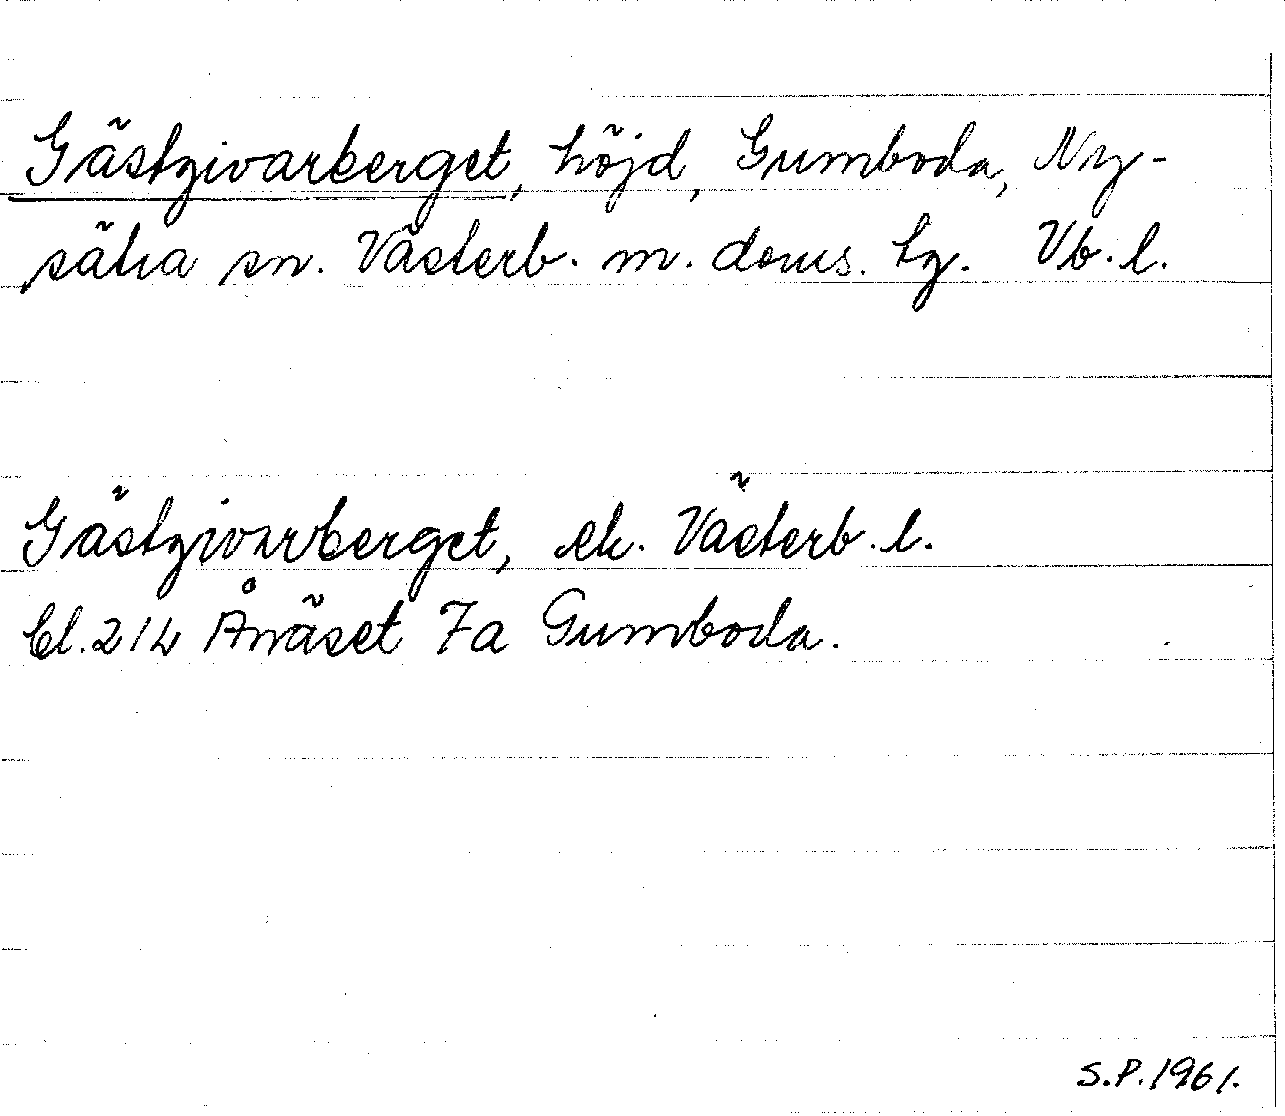 Gästgivarberget, höjd, Gumboda, Ny-
sätra sn. Västerb. m. doms. tg. Vb. l.
Gästgivarberget, ek. Västerb. l.
bl. 214 Ånäset 7a Gumboda.
S.P. 1961.